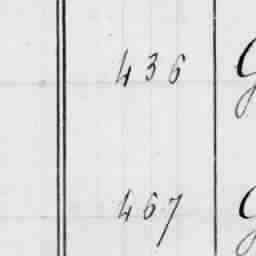 436
467